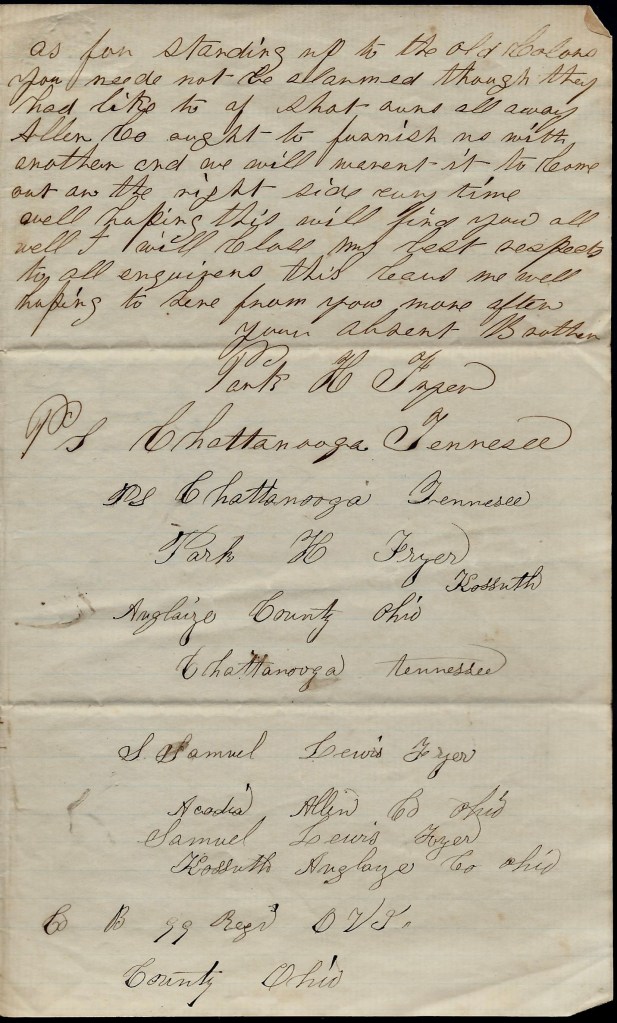 as for standing up to the old Colors
you neede not be alarmed though they
had like to of shot ours all away
Allen Co ought to furnish us with
another and we will warent it to Come
out on the right side evry time
well hoping this will find you all
well I will Close my best respects
to all enquirers this leavs me well
hoping to here from you more often
your absent Brother
Park H Fryer
PS Chattanooga Tennesee
PS Chattanooga Tennesee
Park H Fryer
Kossuth
Auglaize County Ohio
Chattanooga tennessee
S. Samuel Lewis Fryer
Acadia Allen Co Ohio
Samuel Lewis Fryer
Kossuth Auglaze Co Ohio
Co B 99 Regt O V I.
County Ohio